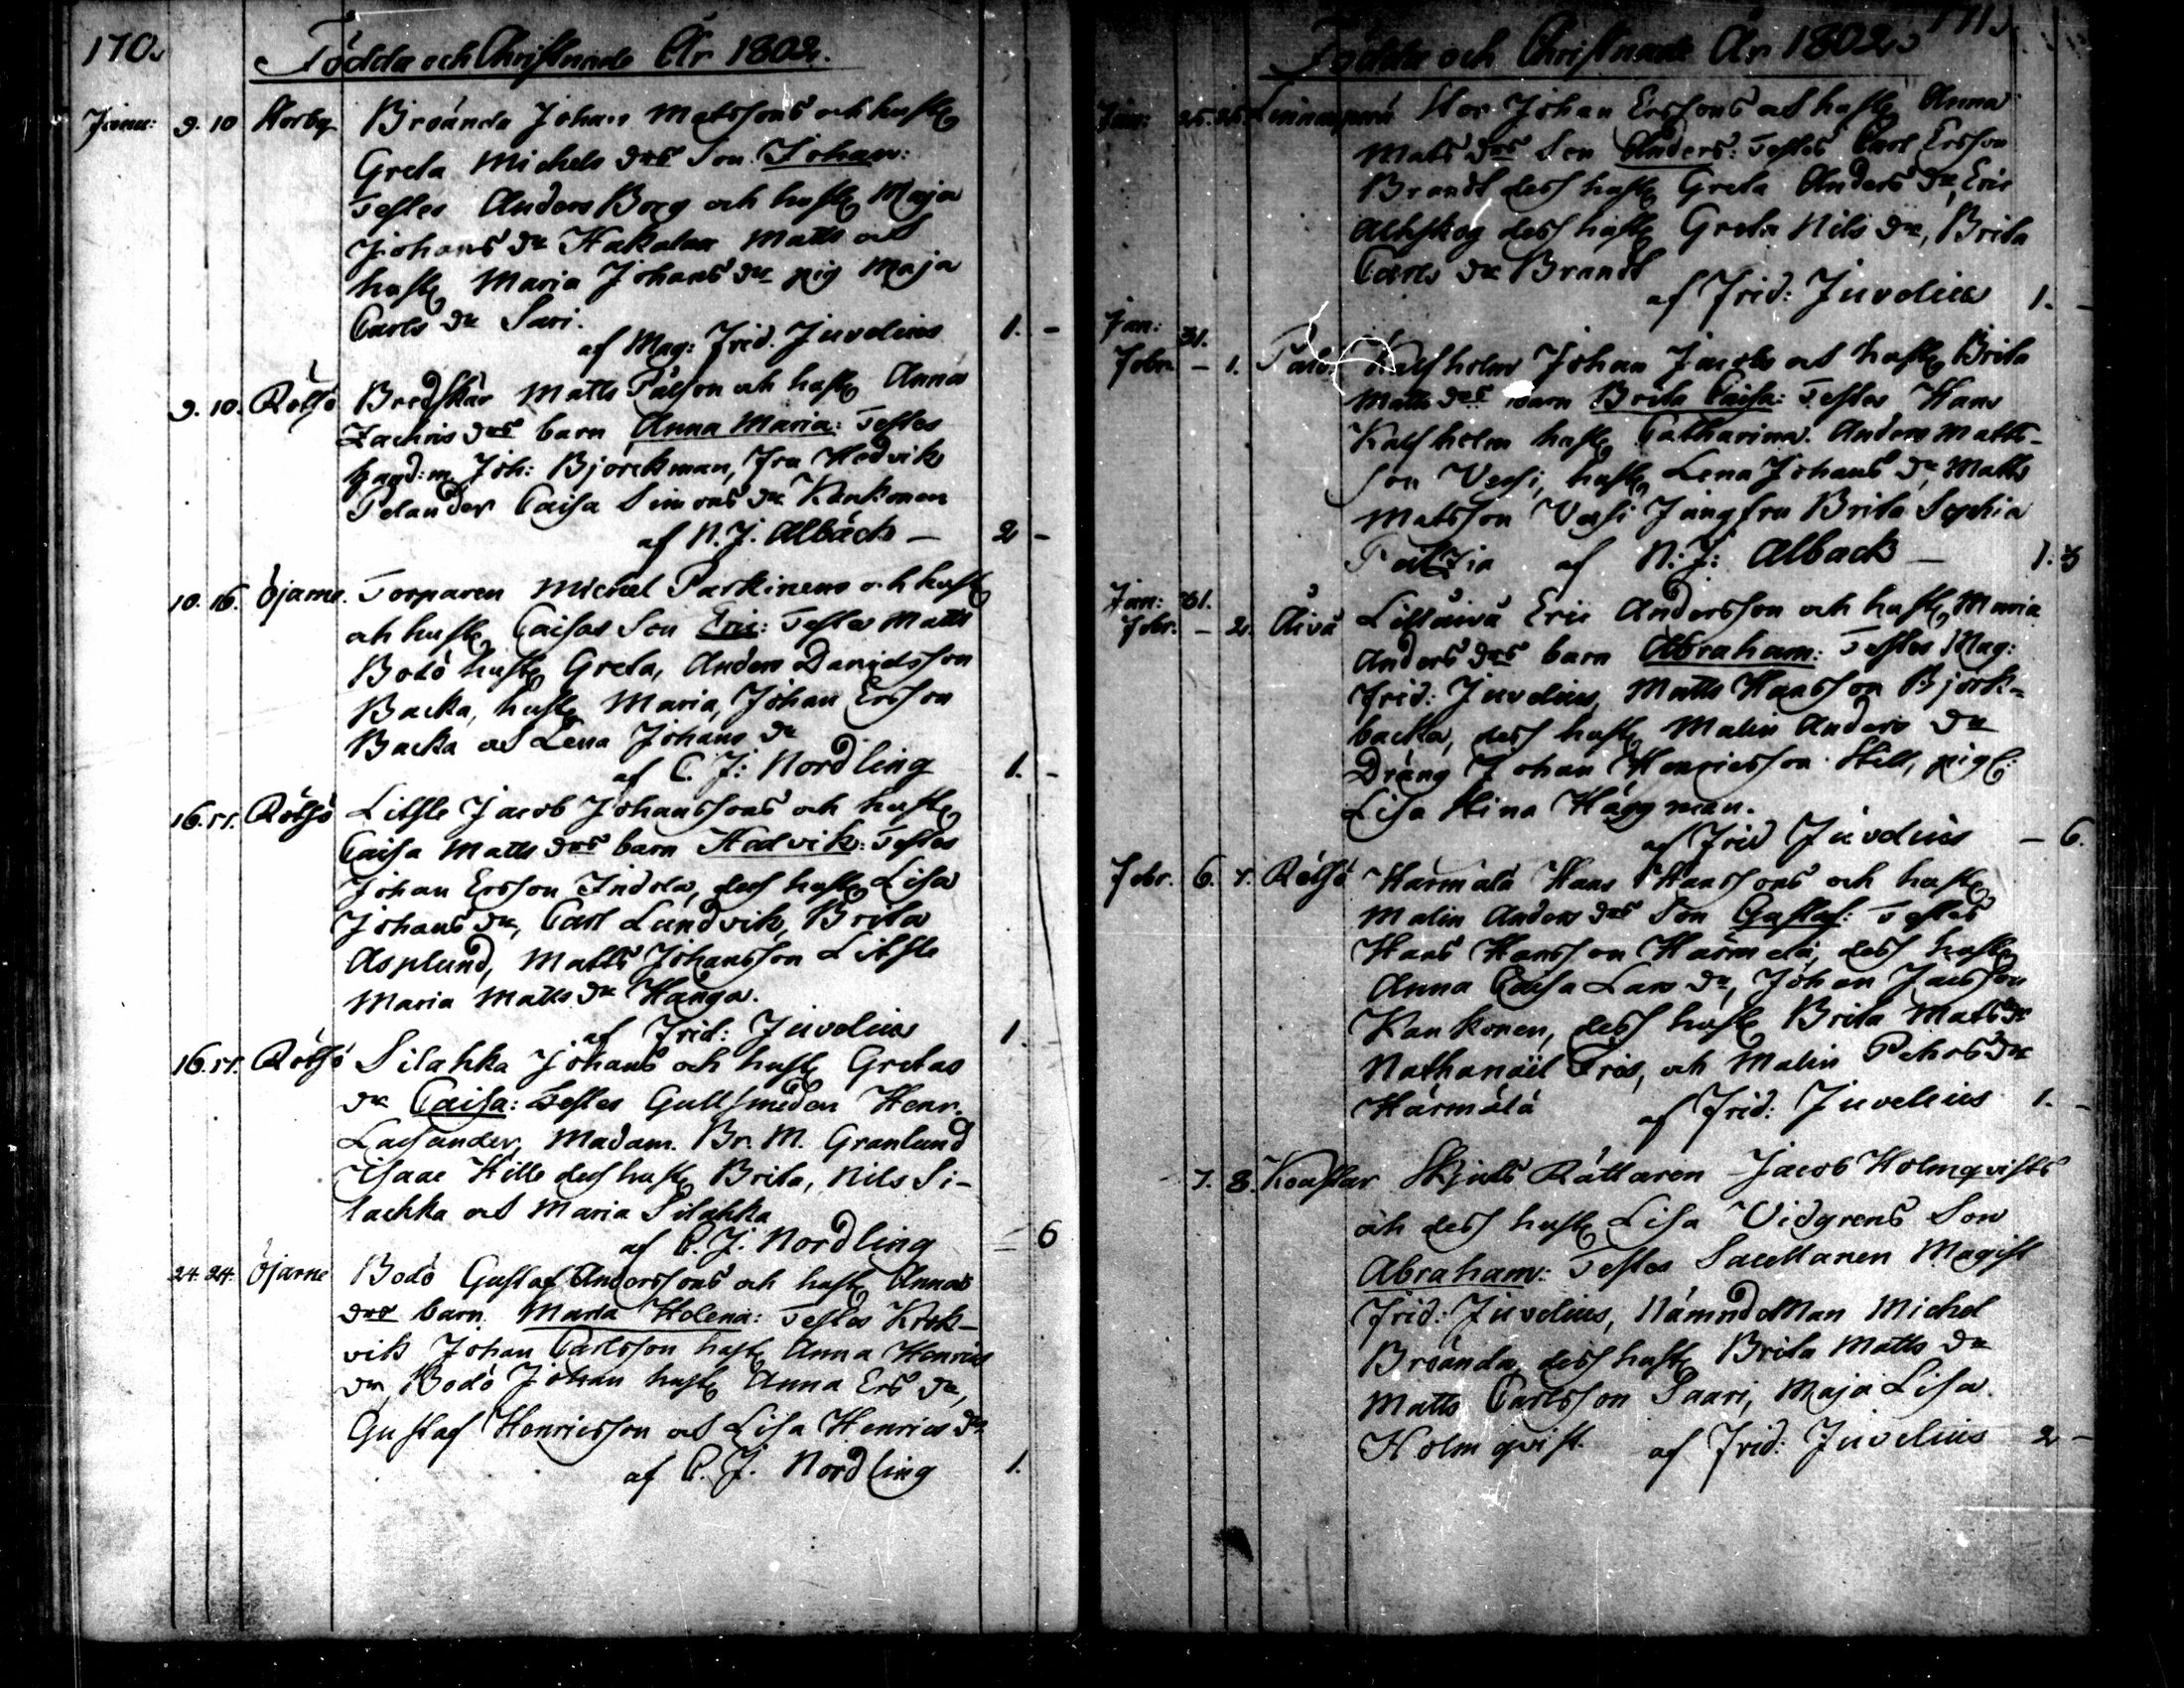 170.
Födda och Christnade År 1802.
Janu: 9. 10 Norby Broända Johan Matssons och hustr
Greta Michels drs Son Johan:
Testes Anders Borg och hustr Maja
Johans dr Hakalax Matts och
hustr Maria Johans dr pig Maja
Carls dr Sari.
af Mag: Frid. Juvelius 1. -
9. 10. Rötsö Bredskär Matts Pålson och hustr Anna
Zachris drs barn Anna Maria: Testes
Joh: Björckman, Fru Hedvik
Caisa Simons dr Kankonen
af N. J. Albäck - 2 -
10. 16. Öjarne. Torparen Michel Parkinens och hustr
och hustr Caisas Son Eric: Testes Matts
Bodö hustr Greta, Anders Danielsson
Backa, hustr Maria, Johan Ersson
Backa och Lena Johans dr
af C. J: Nordling 1. -
16. 17. Rötsö Litsle Jacob Johanssons och hustr
Caisa Matts drs barn Hedvik: Testes
Johan Ersson Indola, dess hustr Lisa
Johans dr, Carl Lundvik, Brita
Asplund, Matts Johansson Litsle
Maria Matts dr Hanga.
af Frid: Juvelius 1. -
16. 17. Rötsö Silahka Johans och hustr Gretas
dr Caisa: Testes Gullsmeden Henr.
Madam. Br. M. Granlund
Isaac Hille dess hustr Brita, Nils Si-
lachka och Maria Silahka
af C. J. Nordling - 6
24. 24. Öjarne Bodö Gustaf Anderssons och hustr Annas
drs barn Maria Helena: Testes Krok-
vik Johan Carlsson hustr Anna Henrics
dr, Bodö Johan hustr Anna Ers dr,
Gustaf Henricsson och Lisa Henrics dr
af C. J. Nordling 1.
171.
Födda och Christnade År 1802.
Jan: 25. 25. Stor Johan Erssons och hustr Anna
Mats drs Son Anders: Testes Carl Ersson
Brandt dess hustr Greta Anders dr, Eric
dess hustr Greta Nils dr, Brita
Carls dr Brandt
af Frid: Juvelius 1. -
Jan: 31.
Febr. - 1. Kalfholm Johan Jacobs och hustr Brita
Matts drs barn Brita Caisa: Testes Hans
Kalfholm hustr Catharina. Anders Matts-
son Vessi, hustr Lena Johans dr, Matts
Matsson Vessi Jungfru Brita Sophia
af N: J: Alback -
Jan: 31.
Febr. - 2. Åivä Lillåivä Eric Andersson och hustr Maria
Anders drs barn Abraham: Testes Mag:
Frid: Juvelius, Matts Hansson Björk-
backa, dess hustr Malin Anders dr
Dräng Johan Henricsson Still, pig:
Lisa Stina Häggman.
af Frid Juvelius - 6.
Febr. 6. 7. Rötsö Härmälä Hans Hanssons och hustr
Malin Anders drs Son Gustaf: Testes
Hans Hansson Härmälä, dess hustr
Anna Caisa Lars dr, Johan Jacsson
Kankonen, dess hustr Brita Mats dr
Nathanäel Fris, och Malin Pehrs dr
Härmälä af Frid: Juvelius 1. -
7. 8. Skjuts Rättaren Jacob Holmqvists
och dess hustr Lisa Vidgrens Son
Abraham: Testes Sacellanen Magist
Frid: Juvelius, Nämndeman Michel
Broända, dess hustr Brita Matts dr
Matts Carlsson Saari, Maja Lisa
Holmqvist. af Frid: Juvelius 2 -